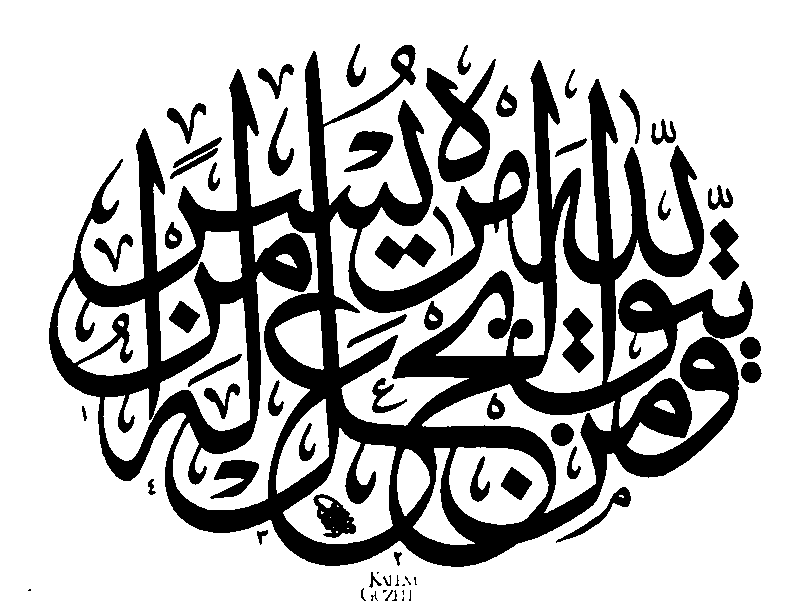 ومن يتق الله يجعل له من أمره يسرا
KALEM
GÜZELİ